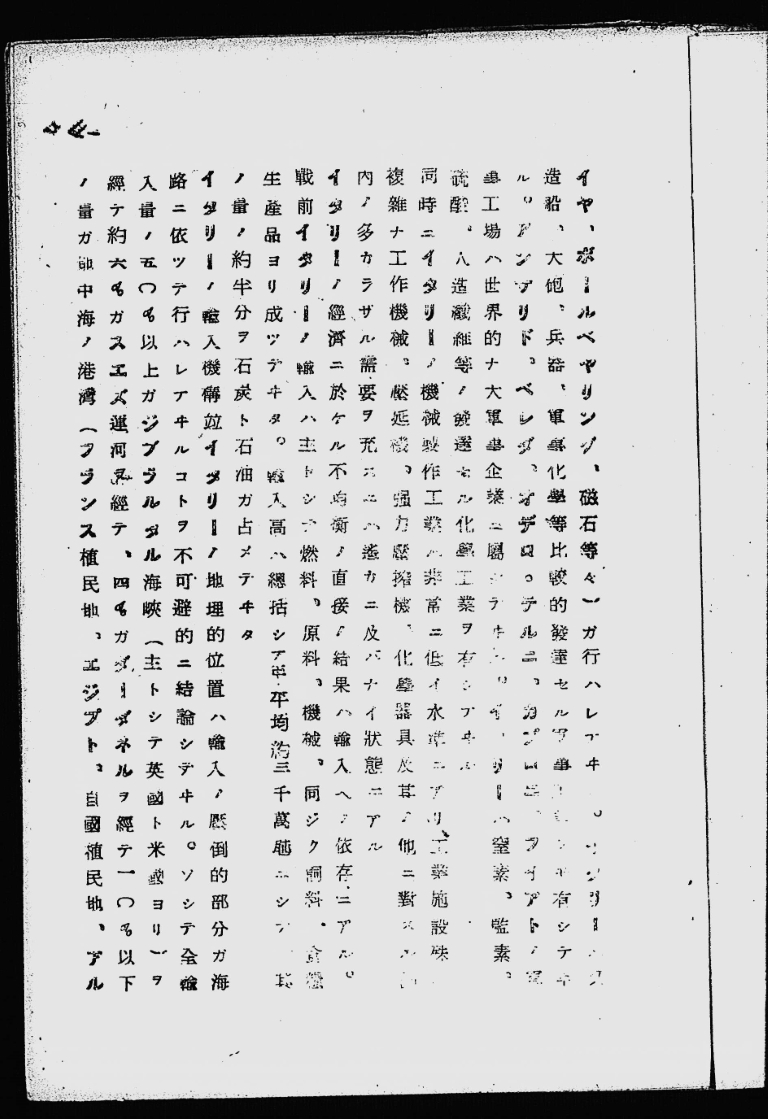 イヤ、ボールベヤリング、磁石等々)ガ行ハレテヰ。
造船、大砲、兵器、軍事化學等比較的發達セル軍事 有シテヰ
ル。アンサリド、ベレダ、オデロ、テルニ、カプロニ、フイアトノ軍
事工場ハ世界的ナ大軍事企業ニ屬シテヰル。イタリーハ窒素、鹽素、
硫酸、人造纖維等ノ發達セル化學工業ヲ有シテヰル
同時ニイタリーノ機械製作工業ハ非常ニ低イ水準ニアリ、工業施設殊
複雜ナ工作機械。壓延機、强力壓搾機、化學器具及其ノ他ニ對スル
内ノ多カラザル需要ヲ充スニハ遙カニ及バナイ狀態ニアル
イタリーノ經濟ニ於ケル不均衡ノ直接ノ結果ハ輸入ヘノ依存ニアル。
戰前イタリーノ輸入ハ主トシテ燃料、原料、機械、同ジク飼料、食糧
生產品ヨリ成ツテヰタ。輸入高ハ總括シテ年平均約三千萬瓲ニシテ、其
ノ量ノ約半分ヲ石炭ト石油ガ占メテヰタ
イタリーノ輸入機構竝イタリーノ地理的位置ハ輸入ノ壓倒的部分ガ海
路ニ依ツテ行ハレテヰルコトヲ不可避的ニ結論シデヰル。ソシテ全輸
入量ノ五〇%以上ガジブラルタル海峽(主トシテ英國ト米國ヨリ)ヲ
經テ約六%ガスエズ運河ヲ經テ、四%ガダーダネルヲ經テ一〇%以下
ノ量ガ地中海ノ港灣(フランス植民地、エジプト、自國植民地、アル